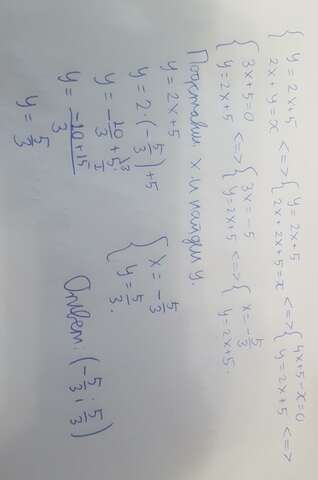 { y = 2x+5 <=> { y = 2x+5 <=> { 4x+5-x=0 <=>
{ 2x+y=x { 2x+2x+5=x { y=2x+5
{ 3x+5=0 <=> { 3x=-5 <=> { x=-5/3
{ y=2x+5 { y=2x+5 { y=2x+5.
Подставим x и найдем y.
y=2x+5
y=2·(-5/3)+5
y=-10/3+5/1\3
y=-10+15/3
y=5/3
{ x=-5/3
{ y=5/3.
Ответ: (-5/3; 5/3)